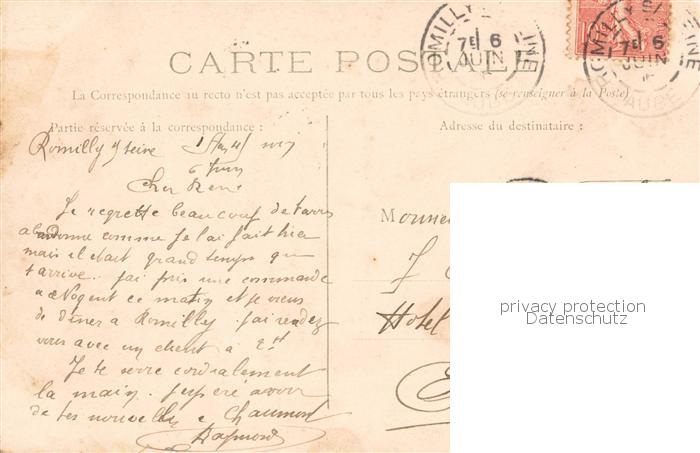 ROMILLY S/ SEINE
7E 6
JUIN
AUBE
ROMILLY S/ SEINE
7E 6
JUIN
AUBE
CARTE POSTALE
La Correspondance au recto n'est pas acceptée par tous les pays étrangers (se renseigner à la Poste)
Partie réservée à la correspondance :
Adresse du destinataire :
Romilly s/ Seine
6 Juin
Cher René
Je regrette beaucoup de t'avoir
abandonné comme je l'ai fait hier
mais il était grand temps que
j'arrive. j'ai pris une commande
a Nogent ce matin et je viens
de diner a Romilly. j'ai rendez
vous avec un client à 2h
Je te serre cordialement
la main. j'espère avoir
de tes nouvelles a Chaumont
Raymond
Monsieur
J
Hotel
privacy protection
Datenschutz